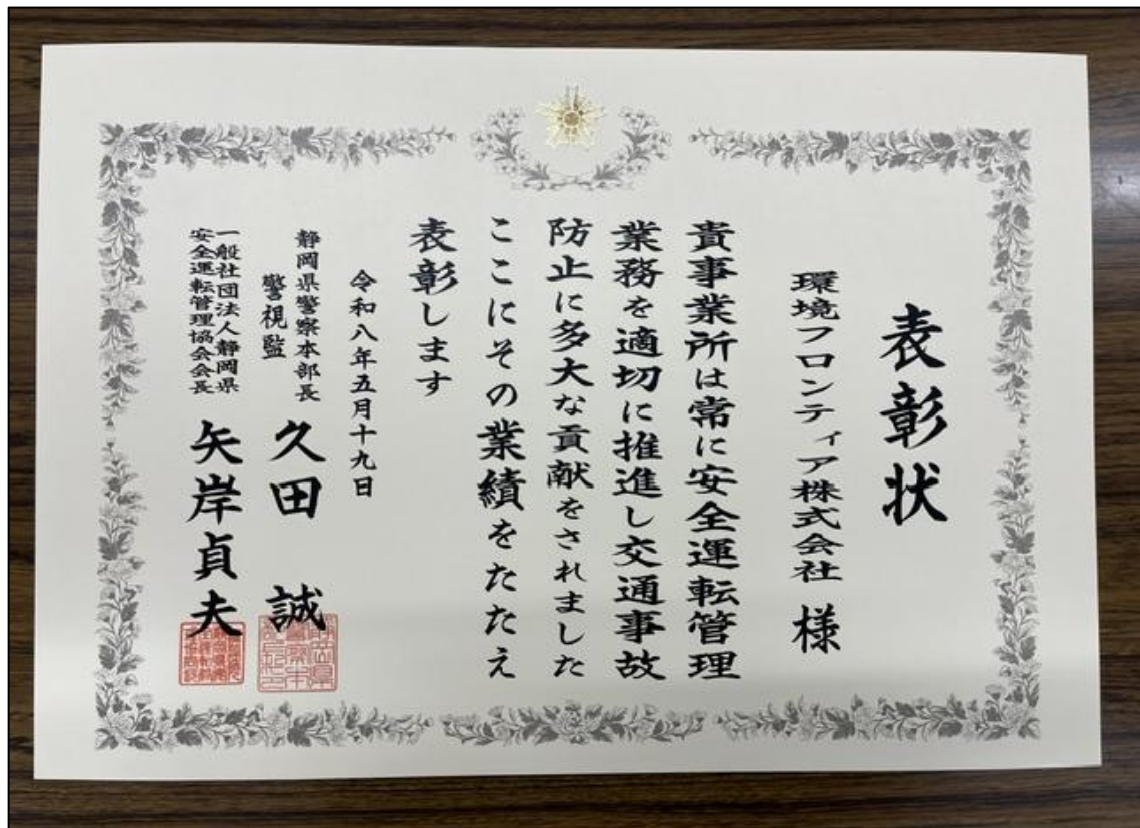 表彰状
環境フロンティア株式会社 様
貴事業所は常に安全運転管理
業務を適切に推進し交通事故
防止に多大な貢献をされました
ここにその業績をたたえ
表彰します
令和八年五月十九日
静岡県警察本部長
警視監 久田 誠
一般社団法人静岡県
安全運転管理協会会長 矢岸貞夫